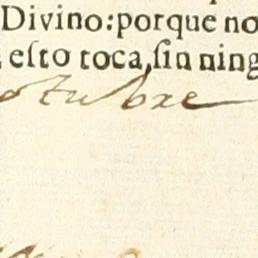 Divino: porque no
esto toca, sin ning